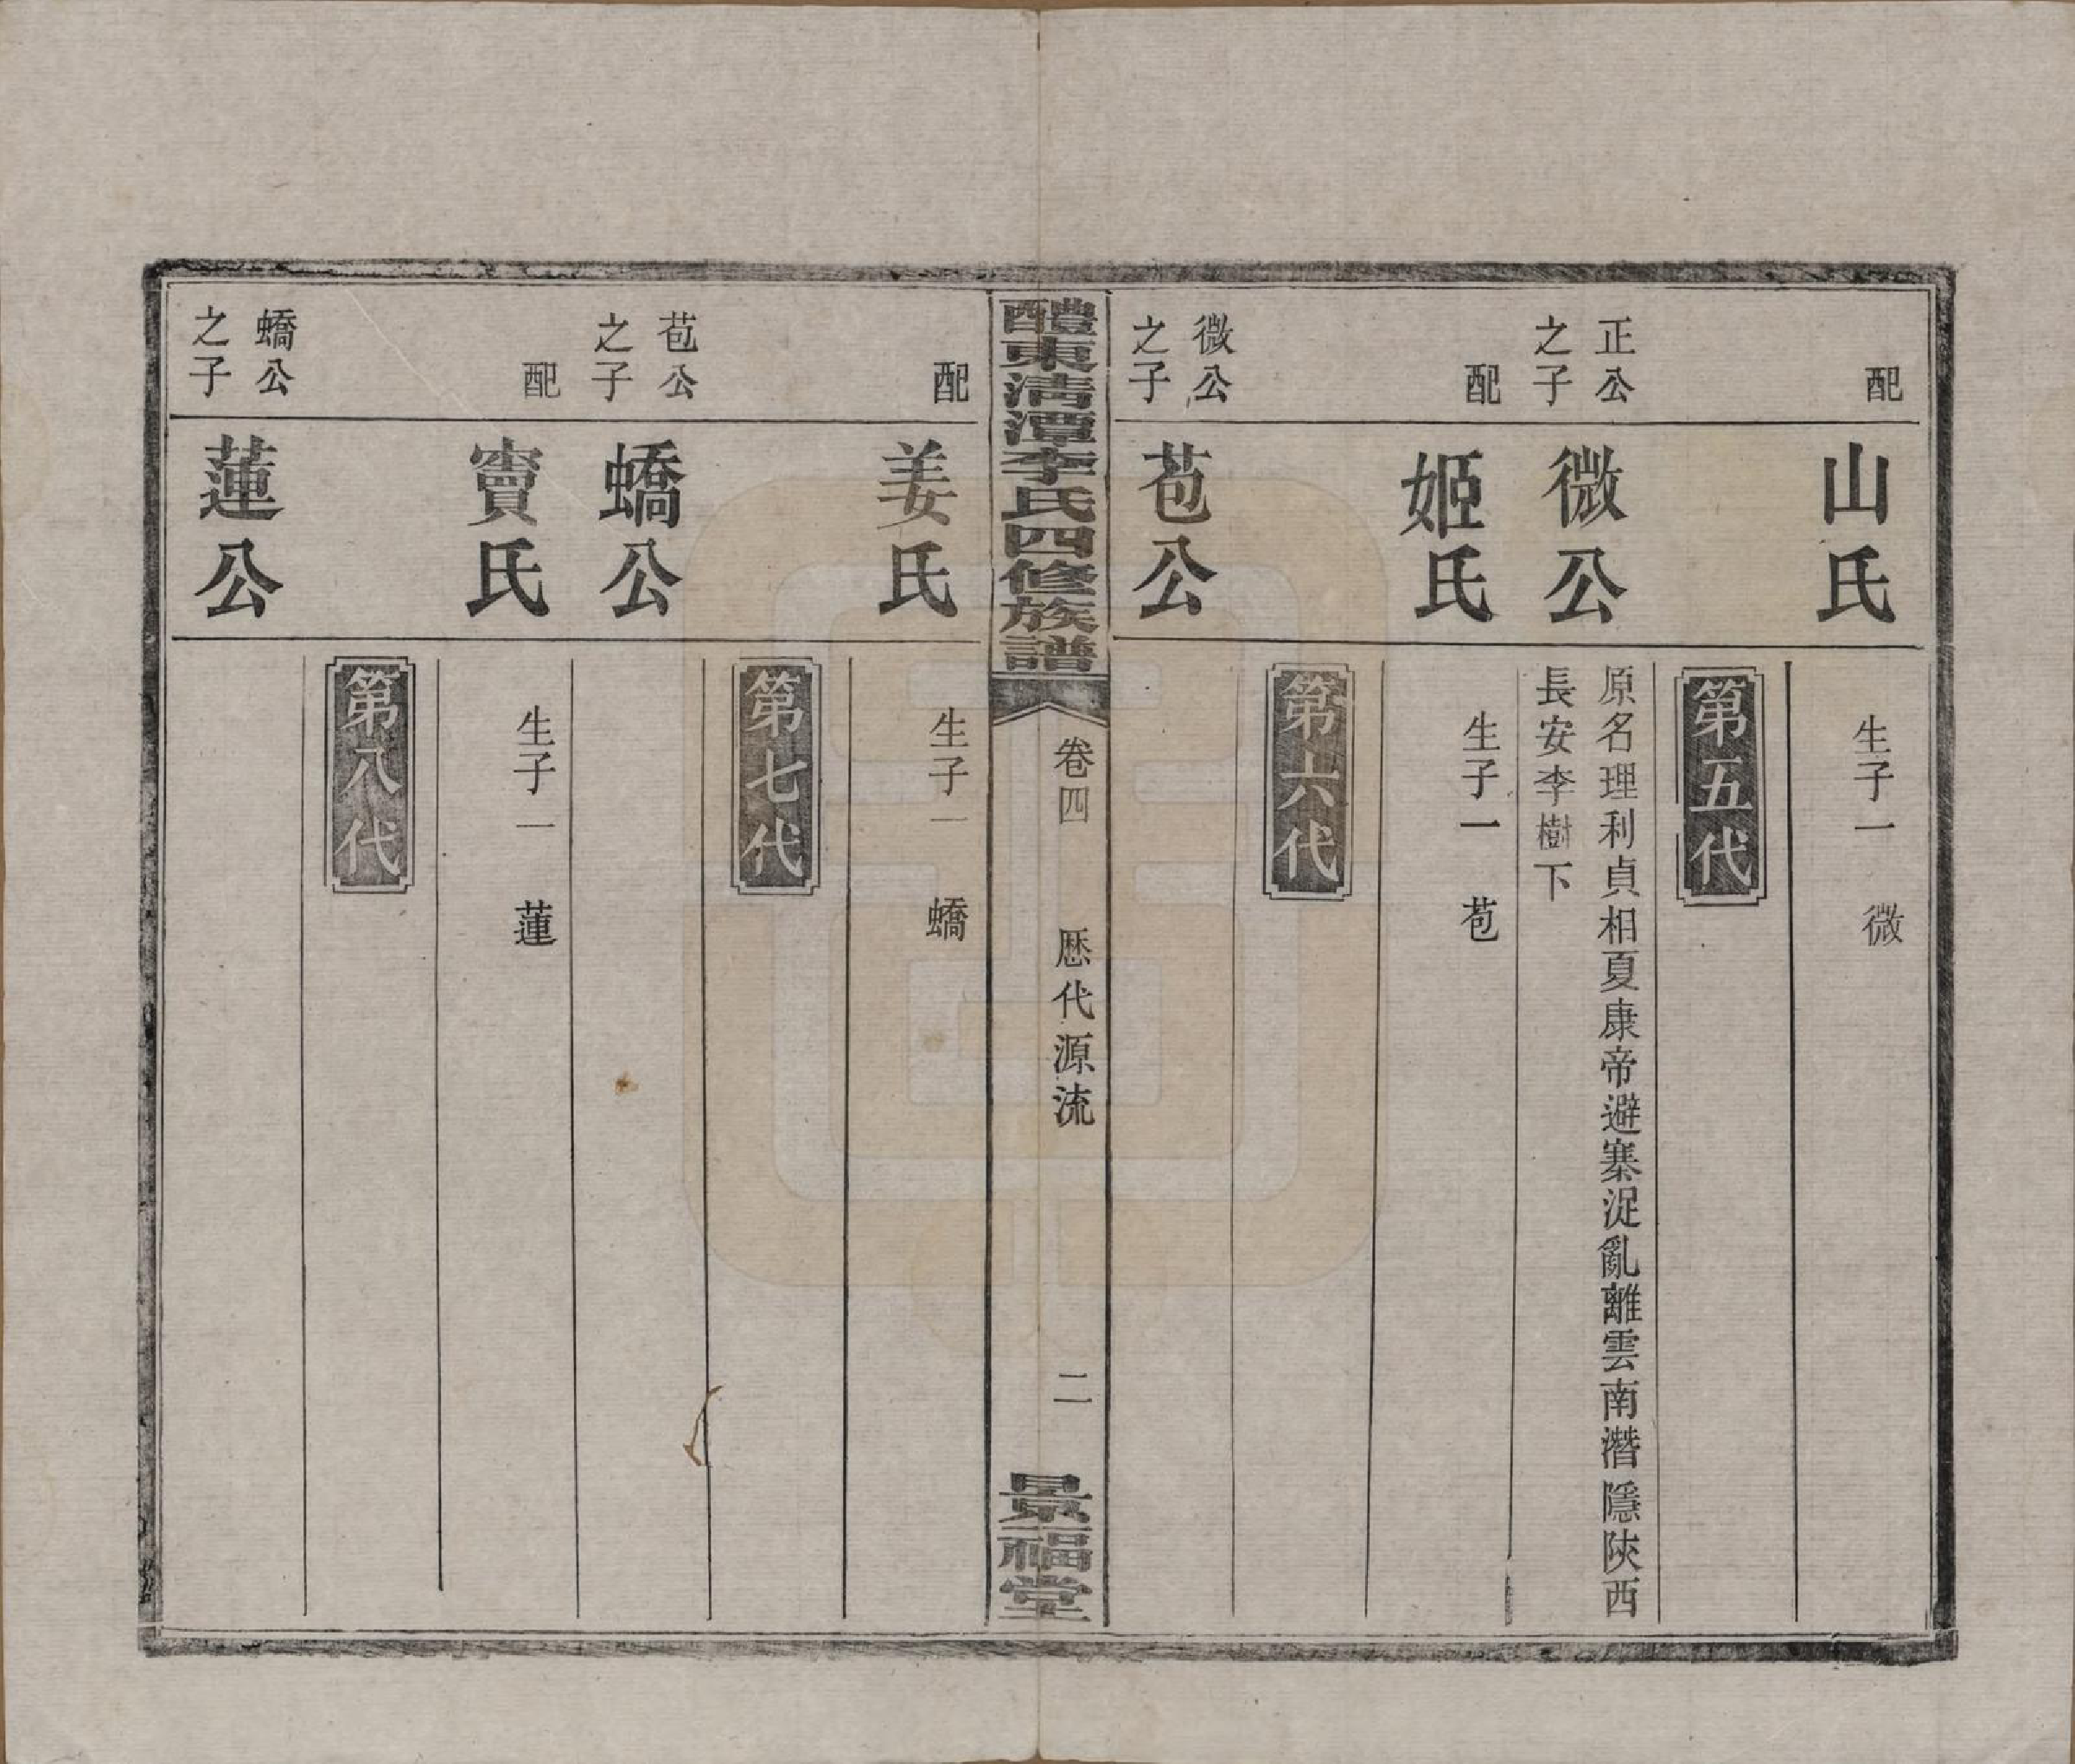 配
山氏
生子一 微
第五代
正公
之子
微公
原名理利貞相夏康帝避寨浞亂離雲南潛隱陝西
長安李樹下
配
姬氏
生子一 苞
第六代
微公
之子
苞公
醴東清潭李氏四修族譜
卷四 歷代源流 二
景福堂
配
姜氏
生子一 蟜
第七代
苞公
之子
蟜公
配
竇氏
生子一 蓮
第八代
蟜公
之子
蓮公